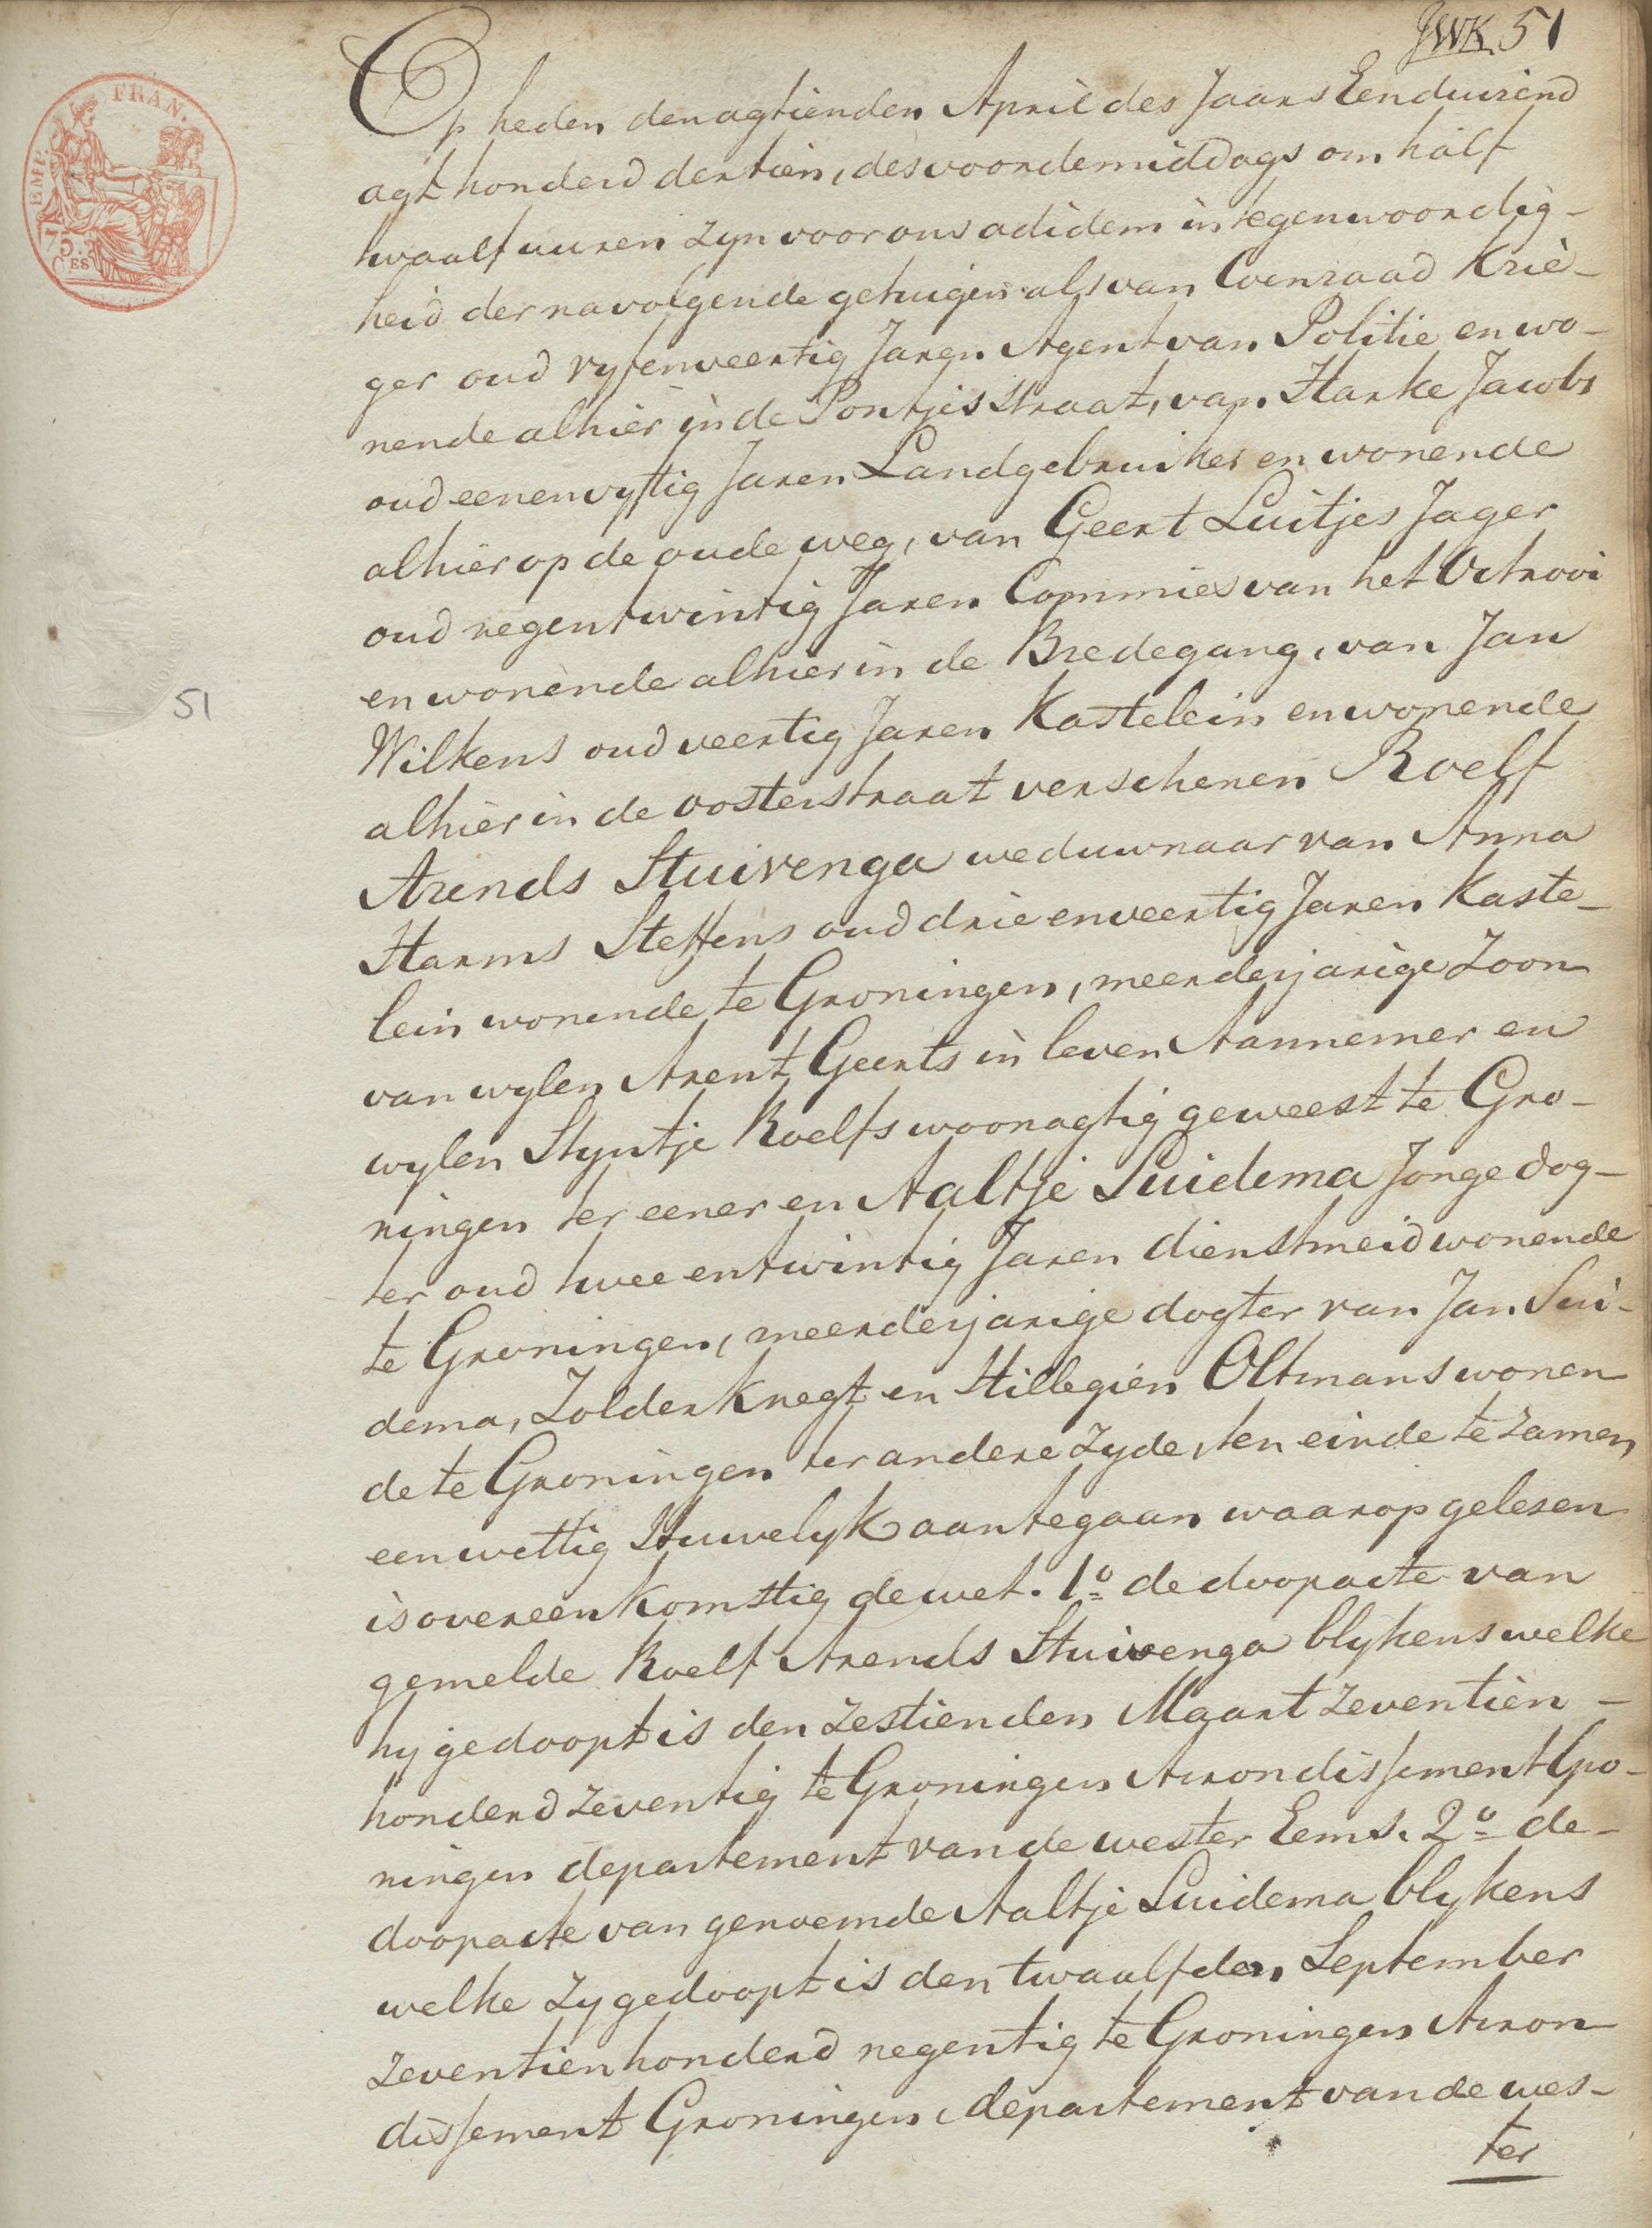 JWK. 51
EMP. FRAN.
75.
CES
Op heden den agtienden April des Jaars Eenduizend
agt honderd dertien, des voordemiddags om half
twaalf uuren zyn voor ons adidem in tegenwoordig-
heid der navolgende getuigen als van Coenraad Krie-
ger oud vyfenveertig Jaren Agent van Politie en wo-
nende alhier in de Pontjes Straat, van Harke Jacobs
oud eenenvyftig Jaren Landgebruiker en wonende
alhier op de oude weg, van Geert Luitjes Jager
oud negentwintig Jaren Commies van het Octrooi
en wonende alhier in de Bredegang, van Jan
51
Wilkens oud veertig Jaren Kastelein en wonende
alhier in de oosterstraat verschenen Roelf
Arends Stuivenga weduwnaar van Anna
Harms Steffens oud drie enveertig Jaren Kaste-
lein wonende te Groningen, meerderjarige Zoon
van wylen Arent Geerts in leven Aannemer en
wylen Styntje Roelfs woonagtig geweest te Gro-
ningen ter eener en Aaltje Suidema Jonge dog-
ter oud twee entwintig Jaren dienstmeid wonende
te Groningen, meerderjarige dogter van Jan Sui-
dema, Zolder Knegt en Hillegien Oltmans wonen
de te Groningen ter andere zyde, ten einde te zamen
een wettig Huwelyk aantegaan waarop gelesen
is overeenkomstig de wet. 1o de doopacte van
gemelde Roelf Arends Stuivenga blykens welke
hy gedoopt is den zestienden Maart zeventien-
honderd zeventig te Groningen Arrondissement Gro-
ningen departement van de wester Eems. 2o de-
doopacte van genoemde Aaltje Suidema blykens
welke zy gedoopt is den twaalfden September
zeventienhonderd negentig te Groningen Arron
dissement Groningen, departement van de wes-
ter